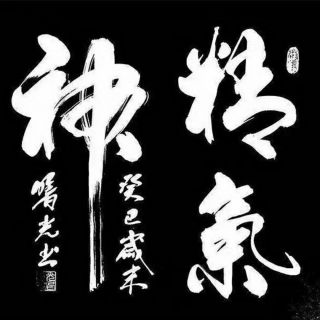 精氣
神
癸巳歲末
鳴光书